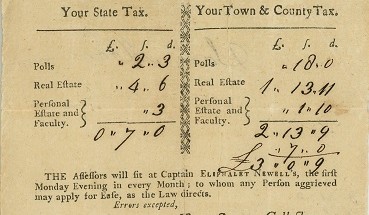 Your State Tax. Your Town & County Tax.
£. ſ. d. £. ſ. d.
Polls " 2 " 3 Polls " 18 " 0
Real Eſtate " 4 " 6 Real Eſtate 1 " 13 " 11
Perſonal Eſtate and Faculty. } " 3 Perſonal Eſtate and Faculty. } " 1 " 10
0 " 7 " 0 2 " 13 " 9
" 7 " 0
£3 " 0 " 9
THE Aſſeſſors will ſit at Captain ELIPHALET NEWELL's, the firſt
Monday Evening in every Month; to whom any Perſon aggrieved
may apply for Eaſe, as the Law directs.
Errors excepted,